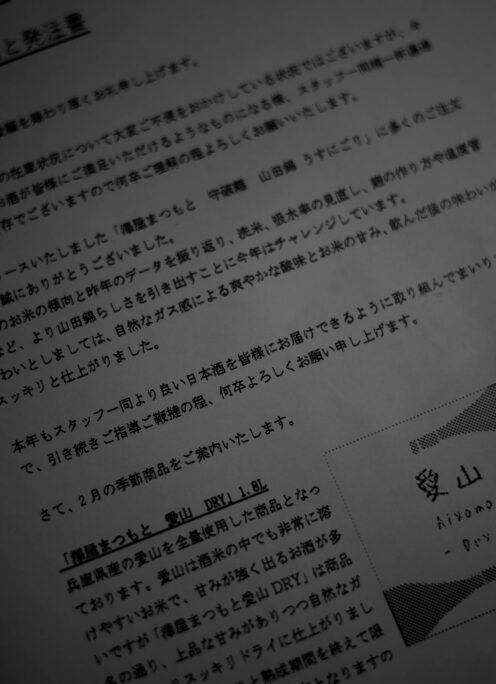 と発注書
賜り厚くお礼申し上げます。
の在庫状況について大変ご不便をおかけしている状況ではございますが、今
お酒が皆様にご満足いただけるようなものになる様、スタッフ一同精一杯邁進
存でございますので何卒ご理解の程よろしくお願いいたします。
ースいたしました「澤屋まつもと 守破離 山田錦 うすにごり」に多くのご注文
誠にありがとうございました。
のお米の傾向と昨年のデータを振り返り、洗米、吸水率の見直し、麹の作り方や温度管
など、より山田錦らしさを引き出すことに今年はチャレンジしています。
わいとしましては、自然なガス感による爽やかな酸味とお米の甘み、飲んだ後の味わいが
スッキリと仕上がりました。
本年もスタッフ一同より良い日本酒を皆様にお届けできるように取り組んでまいりま
で、引き続きご指導ご鞭撻の程、何卒よろしくお願い申し上げます。
さて、2月の季節商品をご案内いたします。
「澤屋まつもと 愛山 DRY」1.8L
兵庫県産の愛山を全量使用した商品となっ
ております。愛山は酒米の中でも非常に溶
けやすいお米で、甘みが強く出るお酒が多
いですが「澤屋まつもと愛山DRY」は商品
名の通り、上品な甘みがありつつ自然なガ
スッキリドライに仕上がりまし
と熟成期間を終えて限
となりますの
愛山
Aiyama
- Dry